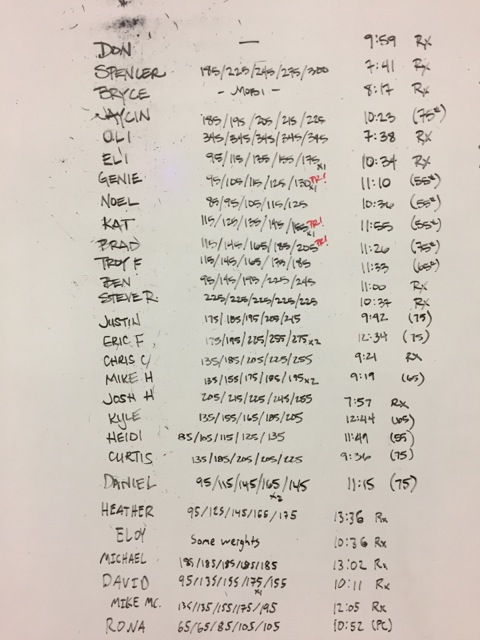 DON — 9:59 Rx
SPENCER 185/225/245/275/300 7:41 Rx
BRYCE - MOBI - 8:17 Rx
JAYCIN 185/195/205/215/225 10:23 (75#)
OLI 345/345/345/345/345 7:38 Rx
ELI 95/115/135/155/175 x1 10:34 Rx
GENIE 95/105/115/125/130 x1 PR! 11:10 (55#)
NOEL 85/95/105/115/125 10:36 (55#)
KAT 115/125/135/145/155 x1 PR! 11:55 (55#)
BRAD 115/145/165/185/205 PR! 11:26 (75#)
TROY F 115/145/165/175/185 11:33 (65#)
BEN 95/145/195/225/245 11:00 Rx
STEVE R. 225/225/225/225/225 10:37 Rx
JUSTIN 175/185/195/205/215 9:42 (75)
ERIC F. 175/195/225/255/275 x2 12:34 (75)
CHRIS C 135/185/205/225/255 9:21 Rx
MIKE H 135/155/175/185/195 x2 9:19 (65)
JOSH H 205/215/225/245/255 7:57 Rx
KYLE 135/155/165/185/205 12:44 (65)
HEIDI 85/105/115/125/135 11:49 (55)
CURTIS 135/185/205/205/225 9:36 (75)
DANIEL 95/115/145/165/145 x2 11:15 (75)
HEATHER 95/125/145/165/175 13:36 Rx
ELOY Some weights 10:36 Rx
MICHAEL 185/185/185/185/185 13:02 Rx
DAVID 95/135/155/175/155 x1 10:11 Rx
MIKE MC. 135/135/155/175/195 12:05 Rx
RONA 65/65/85/105/105 10:52 (PC)